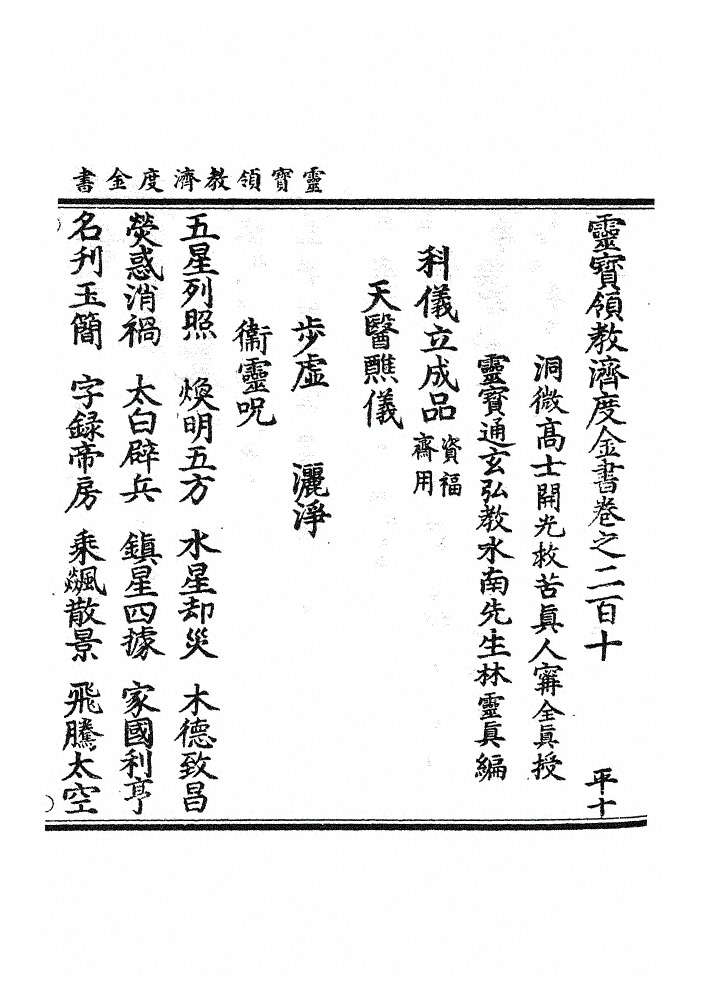 靈寶領教濟度金書
靈寶領教濟度金書卷之二百十　平十
洞微高士開光救苦眞人寗全眞授
靈寶通玄弘教水南先生林靈眞編
科儀立成品資福齋用
天醫醮儀
步虛　灑淨
衞靈呪
五星列照　煥明五方　水星却災　木德致昌
熒惑消禍　太白辟兵　鎮星四據　家國利亨
名刋玉簡　字録帝房　乘飈散景　飛騰太空